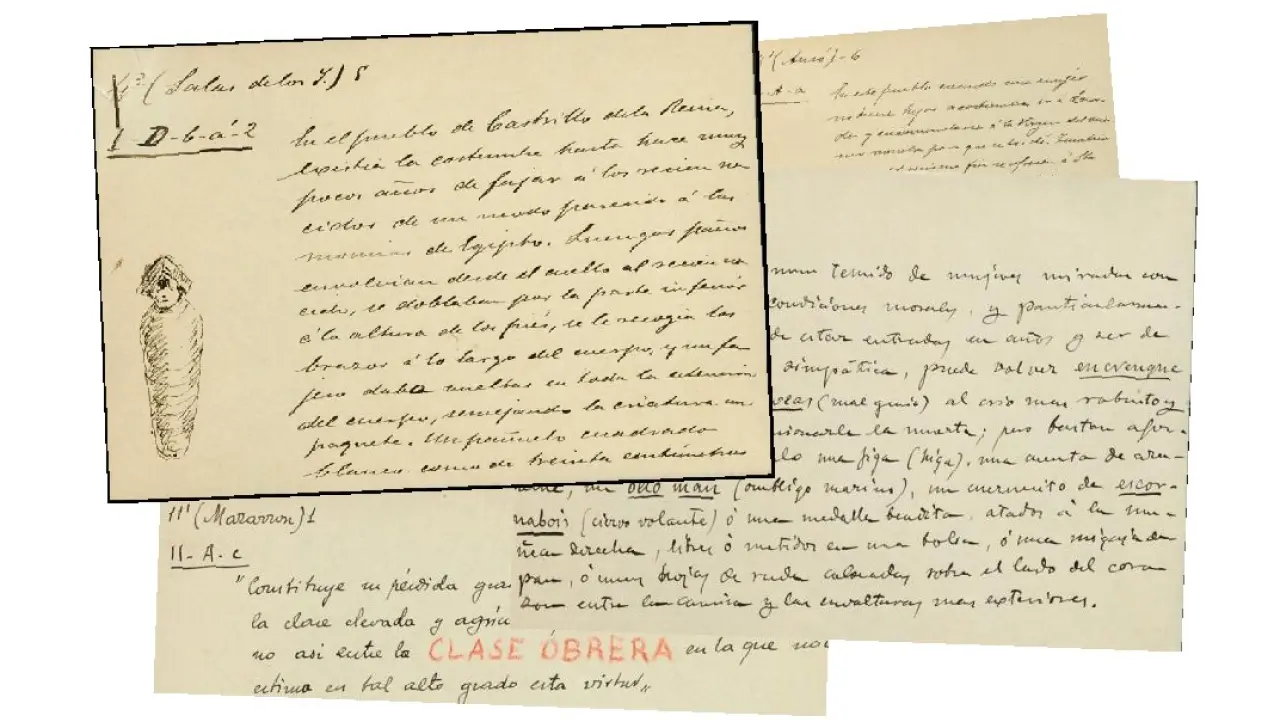 (Salas de los I.) 5
I D-6-á-2
En el pueblo de Castrillo de la Reina,
existía la costumbre hasta hace muy
pocos años de fajar á los recien na
cidos de un modo parecido á las
momias de Egipto. Luengos paños
envolvian desde el cuello al recien na
cido, se doblaban por la parte inferior
á la altura de los pies, se le recogía los
brazos á lo largo del cuerpo, y un fa
jero daba vueltas en toda la extensión
del cuerpo, semejando la criatura un
paquete. Un pañuelo cuadrado
blanco como de treinta centímetros
(Ansó)-6
A-a
En este pueblo cuando una mujer
no tiene hijos acostumbra ir á
y encomendarse á la Virgen del
novena para que se los dé.
el mismo fin se ofrecen á Sta
temido de mujeres miradas con
condiciones morales, y particularmen-
de estar entradas en años y ser de
simpática, puede volver envengue
(mal guiso) al crio mas robusto y
la muerte; pero bastan
una figa (higa), una cuenta de
un ollo man (ombligo marino), un cuernecito de escor-
nabois (ciervo volante) ó una medalla bendita, atados á la mu-
ñeca derecha, libres ó metidos en una bolsa, ó una migaja de
pan, ó unas hojas de ruda colocadas sobre el lado del cora
zon entre la camisa y las envolturas mas exteriores.
III (Mazarron) 1
II-A-c
"Constituye su pérdida
la clase elevada y
no asi entre la CLASE ÓBRERA en la que no
estima en tal alto grado esta virtud"